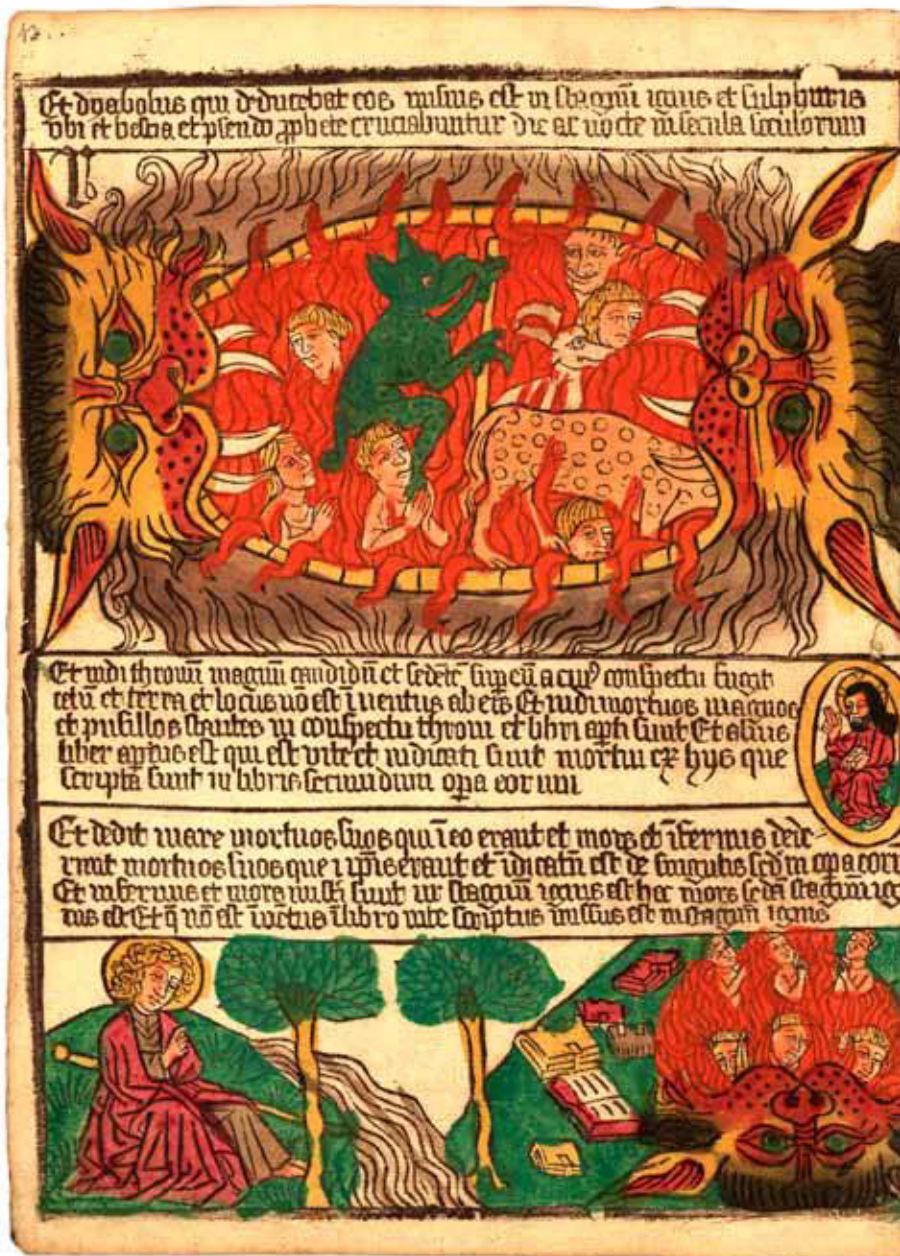 Et dyabolus qui deducebat eos missus est in stagnū ignis et sulphuris
vbi et bestia et pseudo ꝓphete cruciabuntur die ac nocte in secula seculorum
Et vidi thronū magnū candidū et sedētē sup eū a cuiꝰ conspectu fugit
celū et terra et locus nō est ī uentus ab eis Et vidi mortuos magnos
et pusillos stantes in conspectu throni et libri apti sunt Et alius
liber aptus est qui est vite et iudicati sunt mortui ex hijs que
scripta sunt in libris secundum oꝑa eorum
Et dedit mare mortuos suos qui ī eo erant et mors et īfernus dede-
runt mortuos suos que ī ipīs erant et iudicatū est de singulis sedm opa eorū
Et infernus et mors missi sunt in stagnum ignis est hec mors seda stagnum ig
nis est Et q̄ nō est īuetus ī libro vite scriptus missus est in stagnū ignis